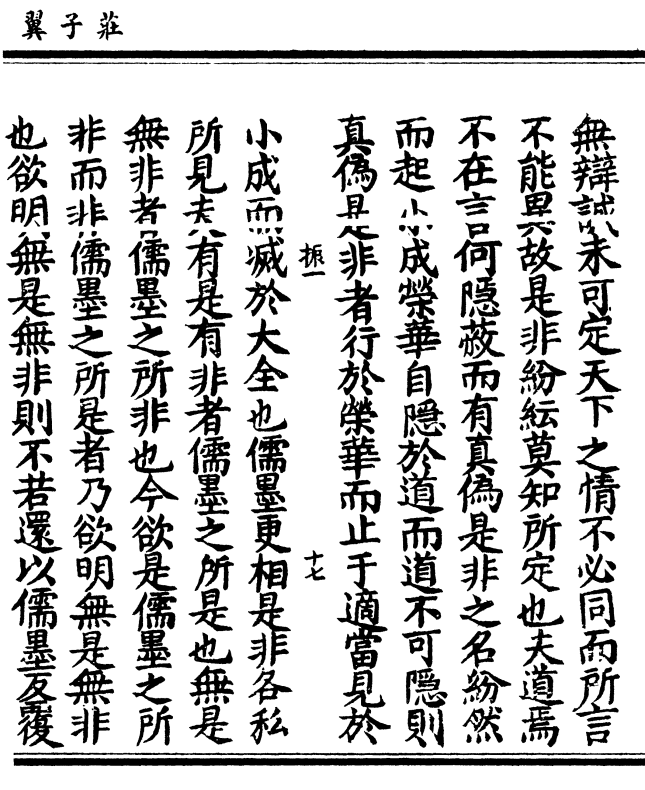 莊子翼
無辯誠未可定天下之情不必同而所言
不能異故是非紛紜莫知所定也夫道焉
不在言何隱蔽而有真偽是非之名紛然
而起小成榮華自隱於道而道不可隱則
真偽是非者行於榮華而止于適當見於
振一 十七
小成而滅於大全也儒墨更相是非各私
所見夫有是有非者儒墨之所是也無是
無非者儒墨之所非也今欲是儒墨之所
非而非儒墨之所是者乃欲明無是無非
也欲明無是無非則不若還以儒墨反覆